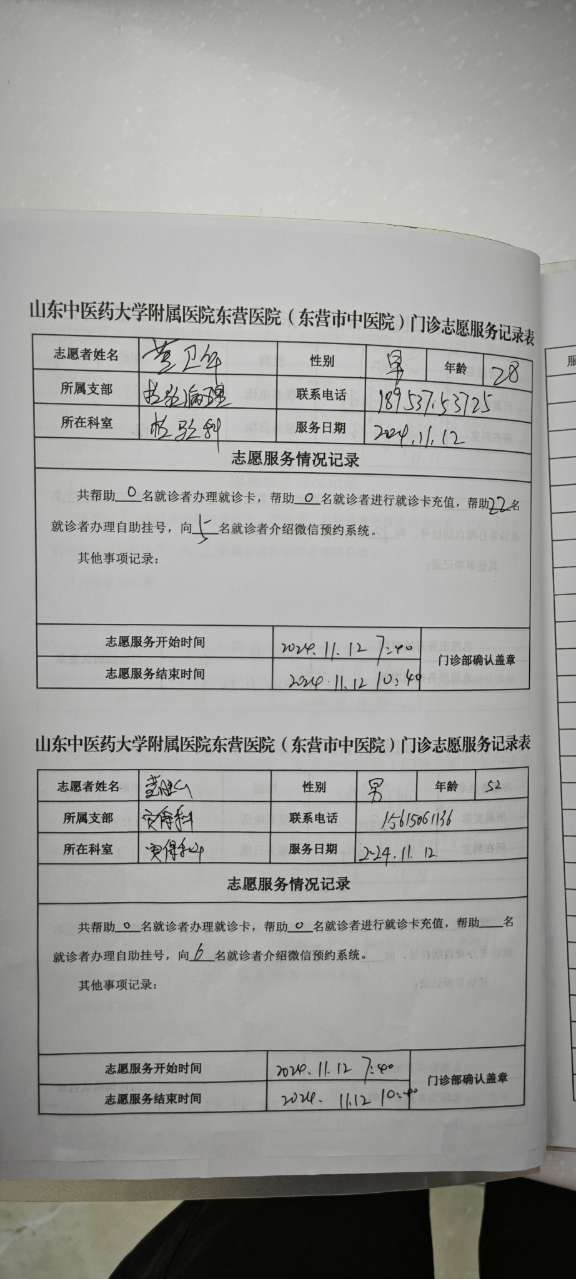 山东中医药大学附属医院东营医院（东营市中医院）门诊志愿服务记录表
志愿者姓名 性别 男 年龄 28
所属支部 检验病理 联系电话 18953753725
所在科室 检验科 服务日期 2024.11.12
志愿服务情况记录
共帮助0名就诊者办理就诊卡，帮助0名就诊者进行就诊卡充值，帮助22名
就诊者办理自助挂号，向5名就诊者介绍微信预约系统。
其他事项记录：
志愿服务开始时间 2024.11.12 7:40
门诊部确认盖章
志愿服务结束时间 2024.11.12 10:40
山东中医药大学附属医院东营医院（东营市中医院）门诊志愿服务记录表
志愿者姓名 性别 男 年龄 52
所属支部 联系电话 15615061136
所在科室 服务日期 2024.11.12
志愿服务情况记录
共帮助0名就诊者办理就诊卡，帮助0名就诊者进行就诊卡充值，帮助 名
就诊者办理自助挂号，向6名就诊者介绍微信预约系统。
其他事项记录：
志愿服务开始时间 2024.11.12 7:40
门诊部确认盖章
志愿服务结束时间 2024. 11.12 10:40